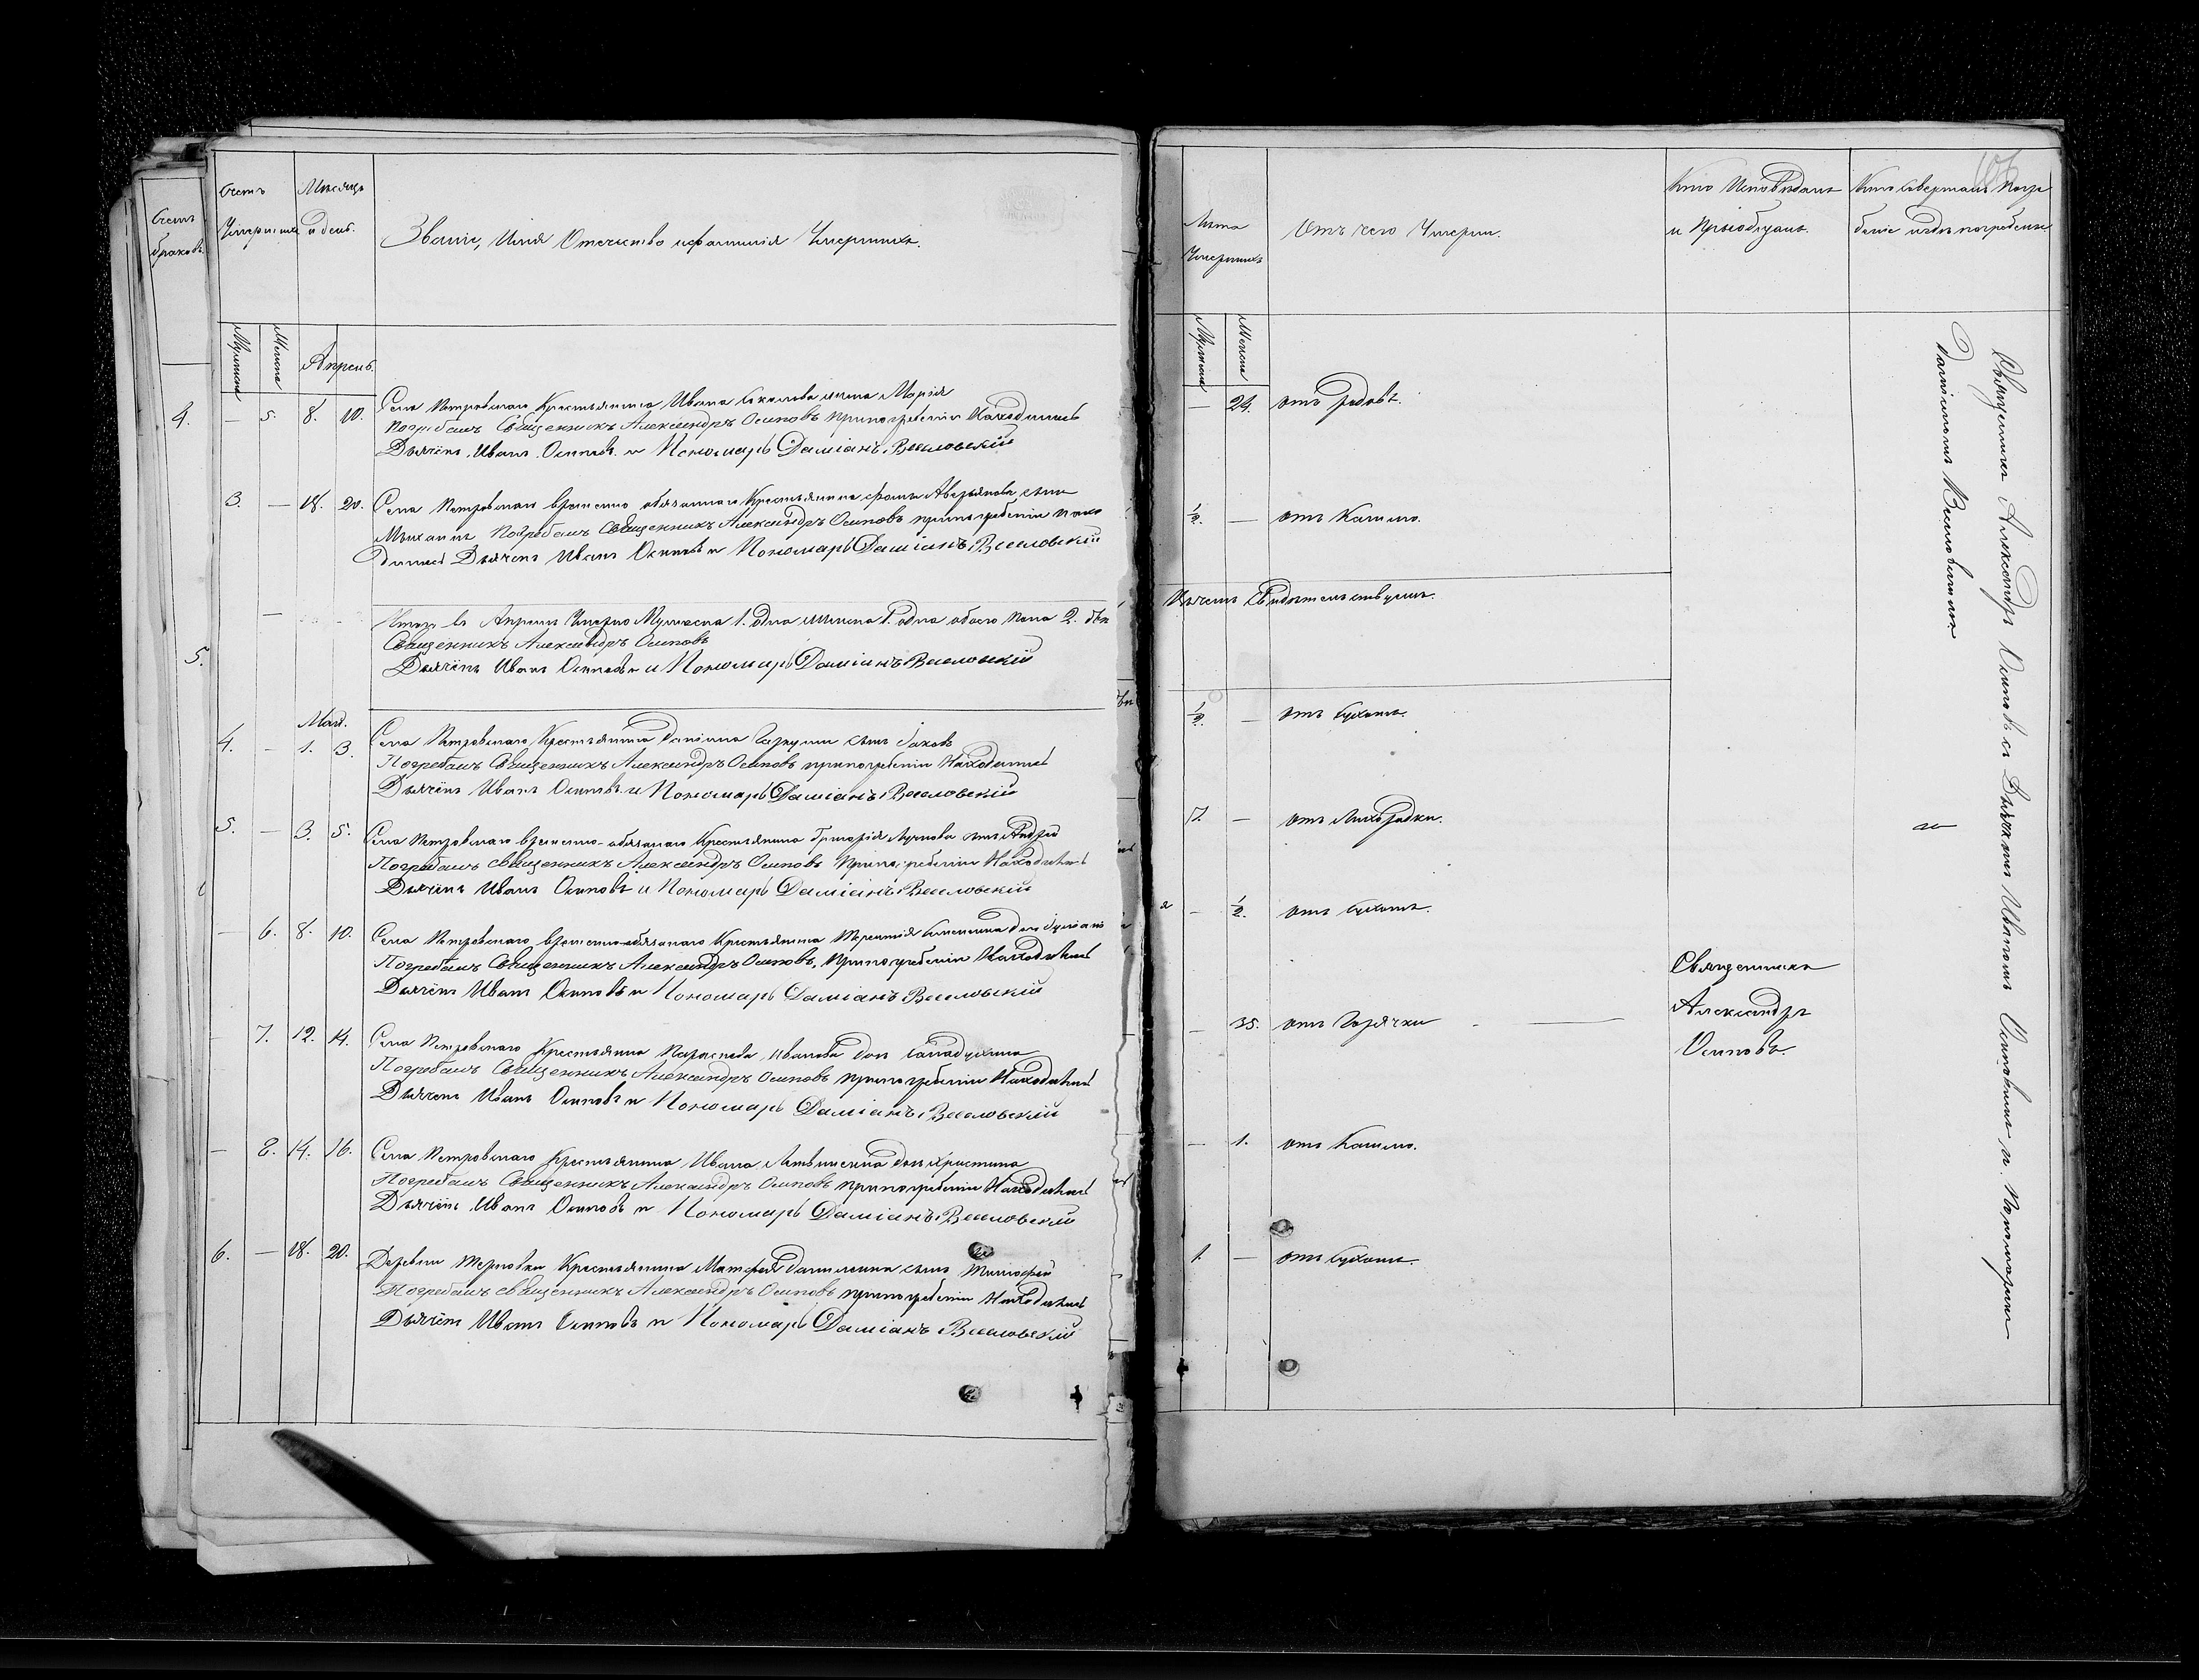 Счетъ
браковъ
4.
5.
Счетъ
Умершихъ
Мѣсяцъ
и день.
Званіе, Имя Отечество и фамилія Умершихъ.
Мужеска
Женска
Апрель.
— 5. 8. 10. Села Петровскаго Крестьянина Ивана жена Марія
Погребалъ Священникъ Александръ Осиповъ при погребеніи Находились
Дьячёкъ Иванъ Осиповъ и Пономарь Даміанъ Веселовскій
3. — 18. 20. Села Петровскаго временно обязаннаго Крестьянина сынъ
Михаилъ Погребалъ Священникъ Александръ Осиповъ при погребеніи нахо
дились Дьячекъ Иванъ Осиповъ и Пономарь Даміанъ Веселовскій
Итого въ Апрели Умерло Мужеска 1. одна женска 1. одна обоего пола 2. двѣ
Священникъ Александръ Осиповъ
Дьячёкъ Иванъ Осиповъ и Пономарь Даміанъ Веселовскій
Май.
4. — 1. 3. Села Петровскаго Крестьянина сынъ Іаковъ
Погребалъ Священникъ Александръ Осиповъ при погребеніи Находились
Дьячёкъ Иванъ Осиповъ и Пономарь Даміанъ Веселовскій
5. — 3. 5. Села Петровскаго временно-обязаннаго Крестьянина Григорія сынъ Андрей
Погребалъ Священникъ Александръ Осиповъ При погребеніи Находились
Дьячёкъ Иванъ Осиповъ и Пономарь Даміанъ Веселовскій
— 6. 8. 10. Села Петровскаго временно-обязаннаго Крестьянина Терентія дочь Іуліанія
Погребалъ Священникъ Александръ Осиповъ, При погребеніи Находились
Дьячёкъ Иванъ Осиповъ и Пономарь Даміанъ Веселовскій
— 7. 12. 14. Села Петровскаго Крестьянка Параскева Иванова дочь
Погребалъ Священникъ Александръ Осиповъ при погребеніи Находились
Дьячекъ Иванъ Осиповъ и Пономарь Даміанъ Веселовскій
— 8. 14. 16. Села Петровскаго Крестьянина Ивана Литвиненка дочь Христина
Погребалъ Священникъ Александръ Осиповъ при погребеніи Находились
Дьячёкъ Иванъ Осиповъ и Пономарь Даміанъ Веселовскій
6. — 18. 20. Деревни Терновки Крестьянина Матфея Даниленка сынъ Тимофей
Погребалъ Священникъ Александръ Осиповъ при погребеніи Находились
Дьячёкъ Иванъ Осиповъ и Пономарь Даміанъ Веселовскій
Лѣта
Умершихъ
Отъ чего Умерли.
Кто Исповѣдалъ
и Пріобщалъ.
Кто совершалъ Погре
беніе и гдѣ погребены
Мужеска
Женска
— 24. отъ родовъ.
1/2. — отъ Кашлю.
Причетъ Свидѣтельствуетъ.
1/2. — отъ Сухотъ.
— отъ Лихорадки.
— 1/2. отъ Сухотъ.
— 35. отъ Горячки —
Священникъ
Александръ
Осиповъ.
— 1. отъ Кашлю.
1. — отъ Сухотъ.
Священникъ Александръ Осиповъ съ Дьячкомъ Иваномъ Осиповымъ и Пономаремъ
Даміаномъ Веселовскимъ.